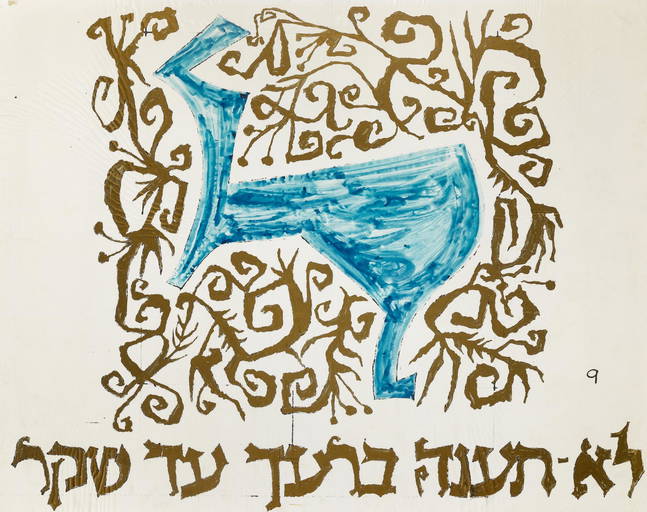 9
לא-תענה ברעך עד שקר